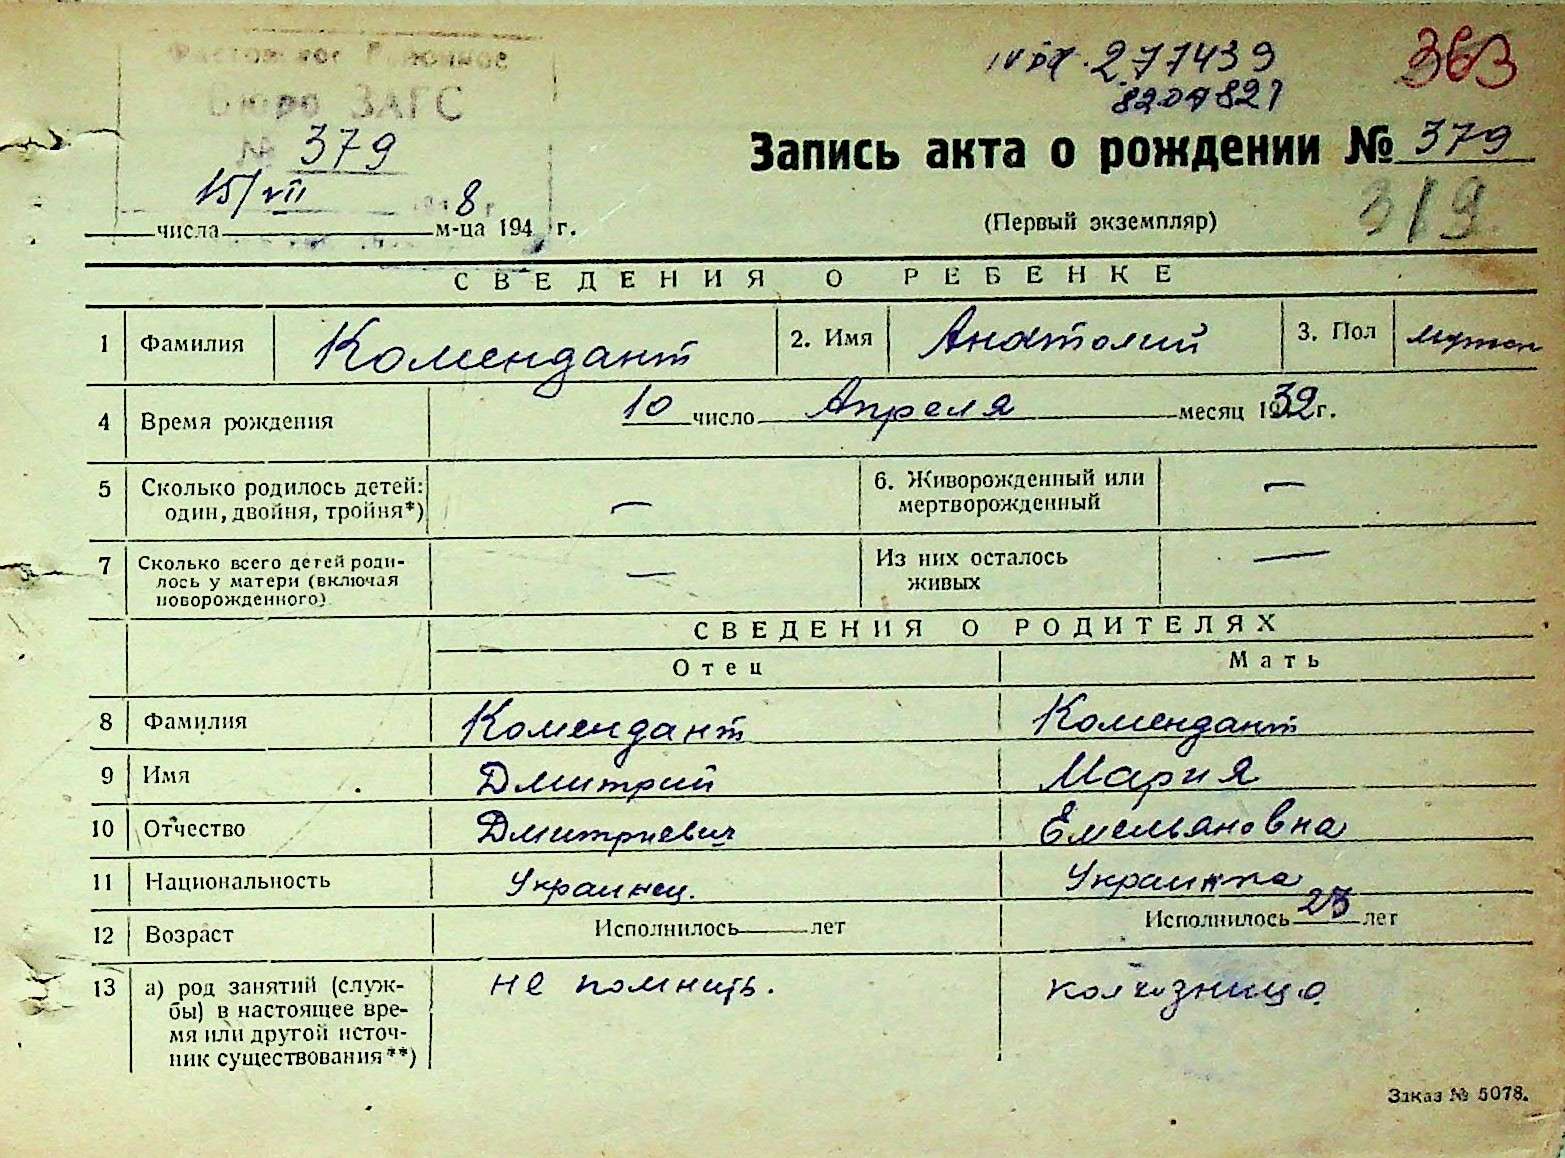 Фастовское Районное
Бюро ЗАГС
№ 379
15/VII 1948 г.
числа м-ца 194 г.
277439
8207821
363
Запись акта о рождении № 379
(Первый экземпляр)
319
СВЕДЕНИЯ О РЕБЕНКЕ
1 Фамилия Комендант 2. Имя Анатолий 3. Пол мужск
4 Время рождения 10 число Апреля месяц 1932 г.
5 Сколько родилось детей: один, двойня, тройня*) — 6. Живорожденный или мертворожденный —
7 Сколько всего детей роди-
лось у матери (включая
новорожденного) — Из них осталось живых —
СВЕДЕНИЯ О РОДИТЕЛЯХ
Отец Мать
8 Фамилия Комендант Комендант
9 Имя Дмитрий Мария
10 Отчество Дмитриевич Емельяновна
11 Национальность Украинец. Украинка
12 Возраст Исполнилось лет Исполнилось 23 лет
13 а) род занятий (служ-
бы) в настоящее вре-
мя или другой источ-
ник существования**) не помнить. колхозница
Заказ № 5078.